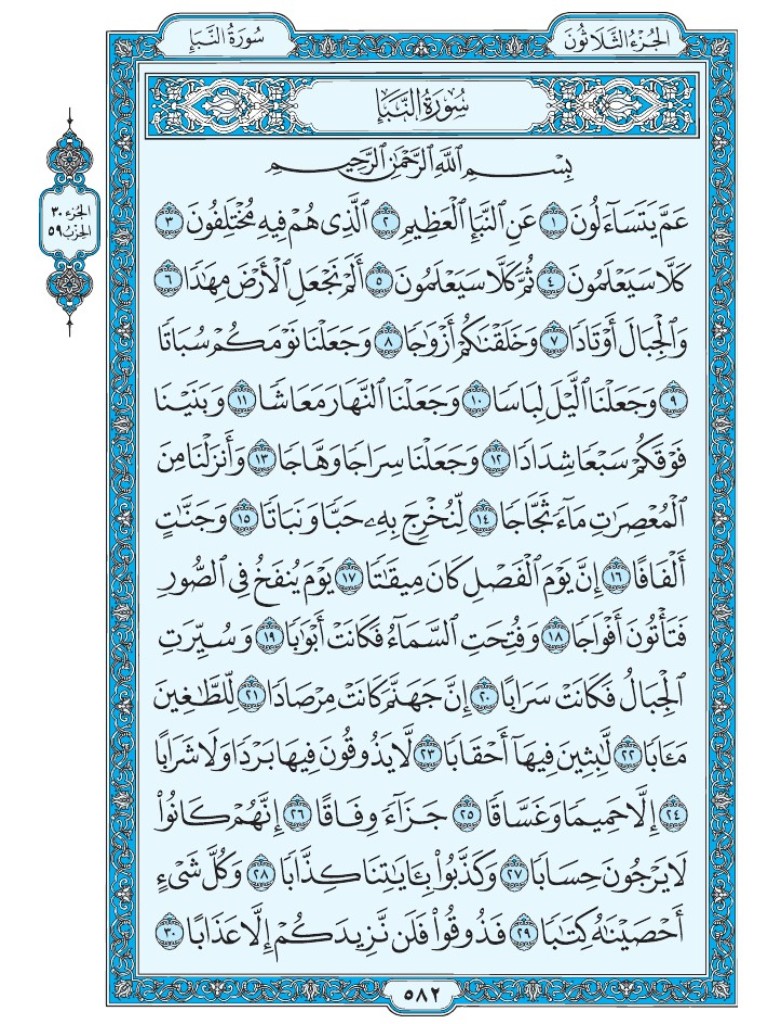 الجُزْءُ الثَّلَاثُونَ
سُورَةُ النَّبَإِ
سُورَةُ النَّبَإِ
الجزء ٣٠
الحزب ٥٩
بِسْمِ ٱللَّهِ ٱلرَّحْمَٰنِ ٱلرَّحِيمِ
عَمَّ يَتَسَآءَلُونَ ١ عَنِ ٱلنَّبَإِ ٱلْعَظِيمِ ٢ ٱلَّذِى هُمْ فِيهِ مُخْتَلِفُونَ ٣
كَلَّا سَيَعْلَمُونَ ٤ ثُمَّ كَلَّا سَيَعْلَمُونَ ٥ أَلَمْ نَجْعَلِ ٱلْأَرْضَ مِهَٰدًا ٦
وَٱلْجِبَالَ أَوْتَادًا ٧ وَخَلَقْنَٰكُمْ أَزْوَٰجًا ٨ وَجَعَلْنَا نَوْمَكُمْ سُبَاتًا
٩ وَجَعَلْنَا ٱلَّيْلَ لِبَاسًا ١٠ وَجَعَلْنَا ٱلنَّهَارَ مَعَاشًا ١١ وَبَنَيْنَا
فَوْقَكُمْ سَبْعًا شِدَادًا ١٢ وَجَعَلْنَا سِرَاجًا وَهَّاجًا ١٣ وَأَنزَلْنَا مِنَ
ٱلْمُعْصِرَٰتِ مَآءً ثَجَّاجًا ١٤ لِّنُخْرِجَ بِهِۦ حَبًّا وَنَبَاتًا ١٥ وَجَنَّٰتٍ
أَلْفَافًا ١٦ إِنَّ يَوْمَ ٱلْفَصْلِ كَانَ مِيقَٰتًا ١٧ يَوْمَ يُنفَخُ فِى ٱلصُّورِ
فَتَأْتُونَ أَفْوَاجًا ١٨ وَفُتِحَتِ ٱلسَّمَآءُ فَكَانَتْ أَبْوَٰبًا ١٩ وَسُيِّرَتِ
ٱلْجِبَالُ فَكَانَتْ سَرَابًا ٢٠ إِنَّ جَهَنَّمَ كَانَتْ مِرْصَادًا ٢١ لِّلطَّٰغِينَ
مَـَٔابًا ٢٢ لَّٰبِثِينَ فِيهَآ أَحْقَابًا ٢٣ لَّا يَذُوقُونَ فِيهَا بَرْدًا وَلَا شَرَابًا
٢٤ إِلَّا حَمِيمًا وَغَسَّاقًا ٢٥ جَزَآءً وِفَاقًا ٢٦ إِنَّهُمْ كَانُوا۟
لَا يَرْجُونَ حِسَابًا ٢٧ وَكَذَّبُوا۟ بِـَٔايَٰتِنَا كِذَّابًا ٢٨ وَكُلَّ شَىْءٍ
أَحْصَيْنَٰهُ كِتَٰبًا ٢٩ فَذُوقُوا۟ فَلَن نَّزِيدَكُمْ إِلَّا عَذَابًا ٣٠
٥٨٢